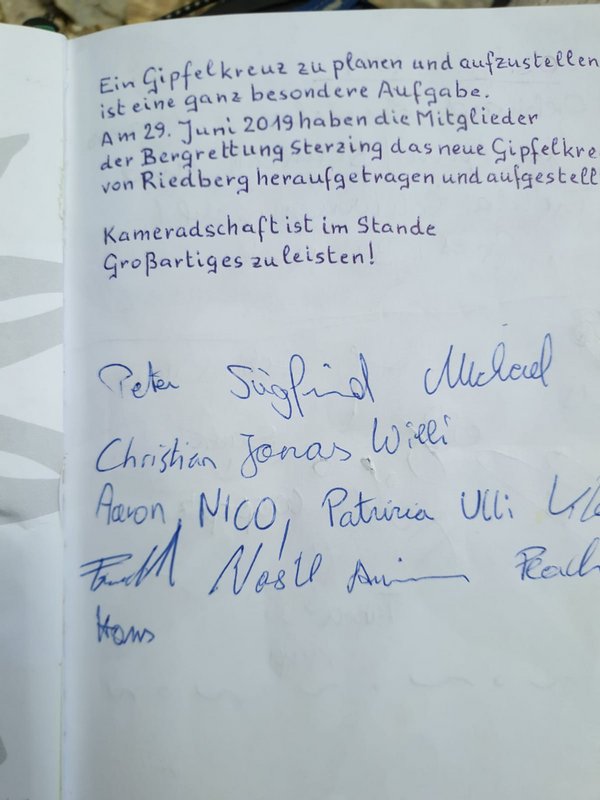 Ein Gipfelkreuz zu planen und aufzustellen
ist eine ganz besondere Aufgabe.
Am 29. Juni 2019 haben die Mitglieder
der Bergrettung Sterzing das neue Gipfelkre
von Riedberg heraufgetragen und aufgestell
Kameradschaft ist im Stande
Großartiges zu leisten!
Peter Sigfrid Michael
Christian Jonas Willi
Aaron, NICO, Patrizia Ulli
Hans